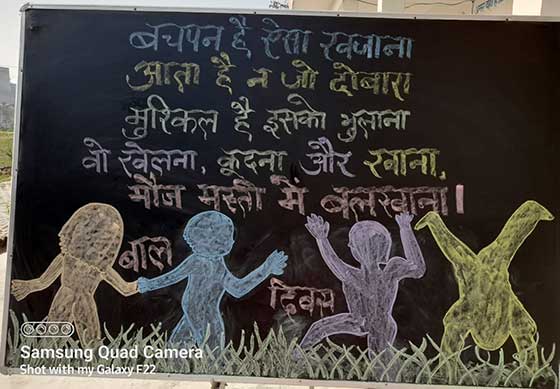 बचपन है ऐसा खजाना
आता है न जो दोबारा
मुश्किल है इसको भुलाना
वो खेलना, कूदना और खाना,
मौज मस्ती में बलखाना।
बाल
दिवस
Samsung Quad Camera
Shot with my Galaxy F22